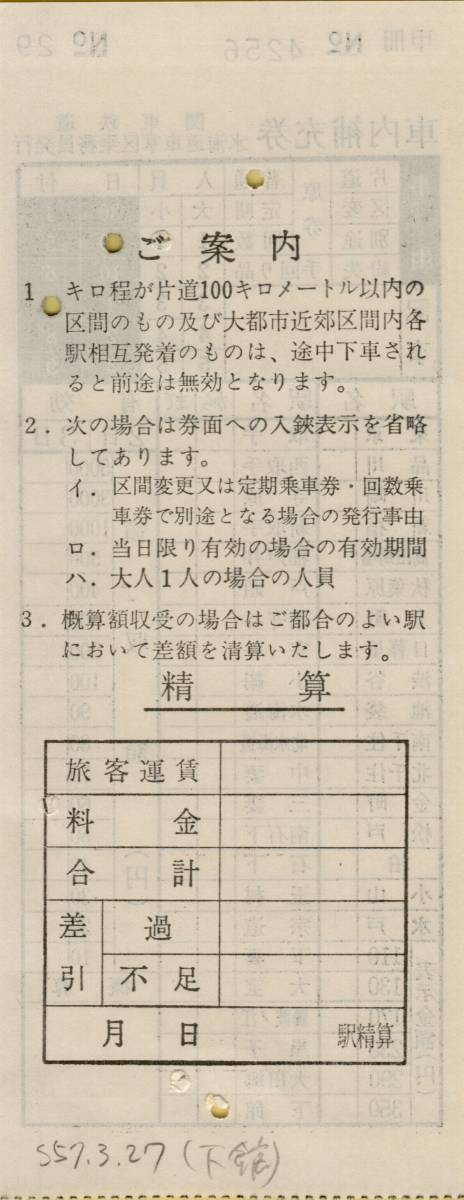 ご案内
1 キロ程が片道100キロメートル以内の
区間のもの及び大都市近郊区間内各
駅相互発着のものは、途中下車され
ると前途は無効となります。
2．次の場合は券面への入鋏表示を省略
してあります。
イ．区間変更又は定期乗車券・回数乗
車券で別途となる場合の発行事由
ロ．当日限り有効の場合の有効期間
ハ．大人1人の場合の人員
3．概算額収受の場合はご都合のよい駅
において差額を清算いたします。
精算
旅客運賃
料金
合計
差引
過
不足
月 日 駅精算
S57.3.27（下館）